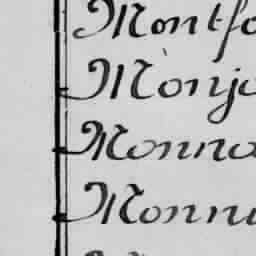 Montfo
Monjo
Monna
Monnu